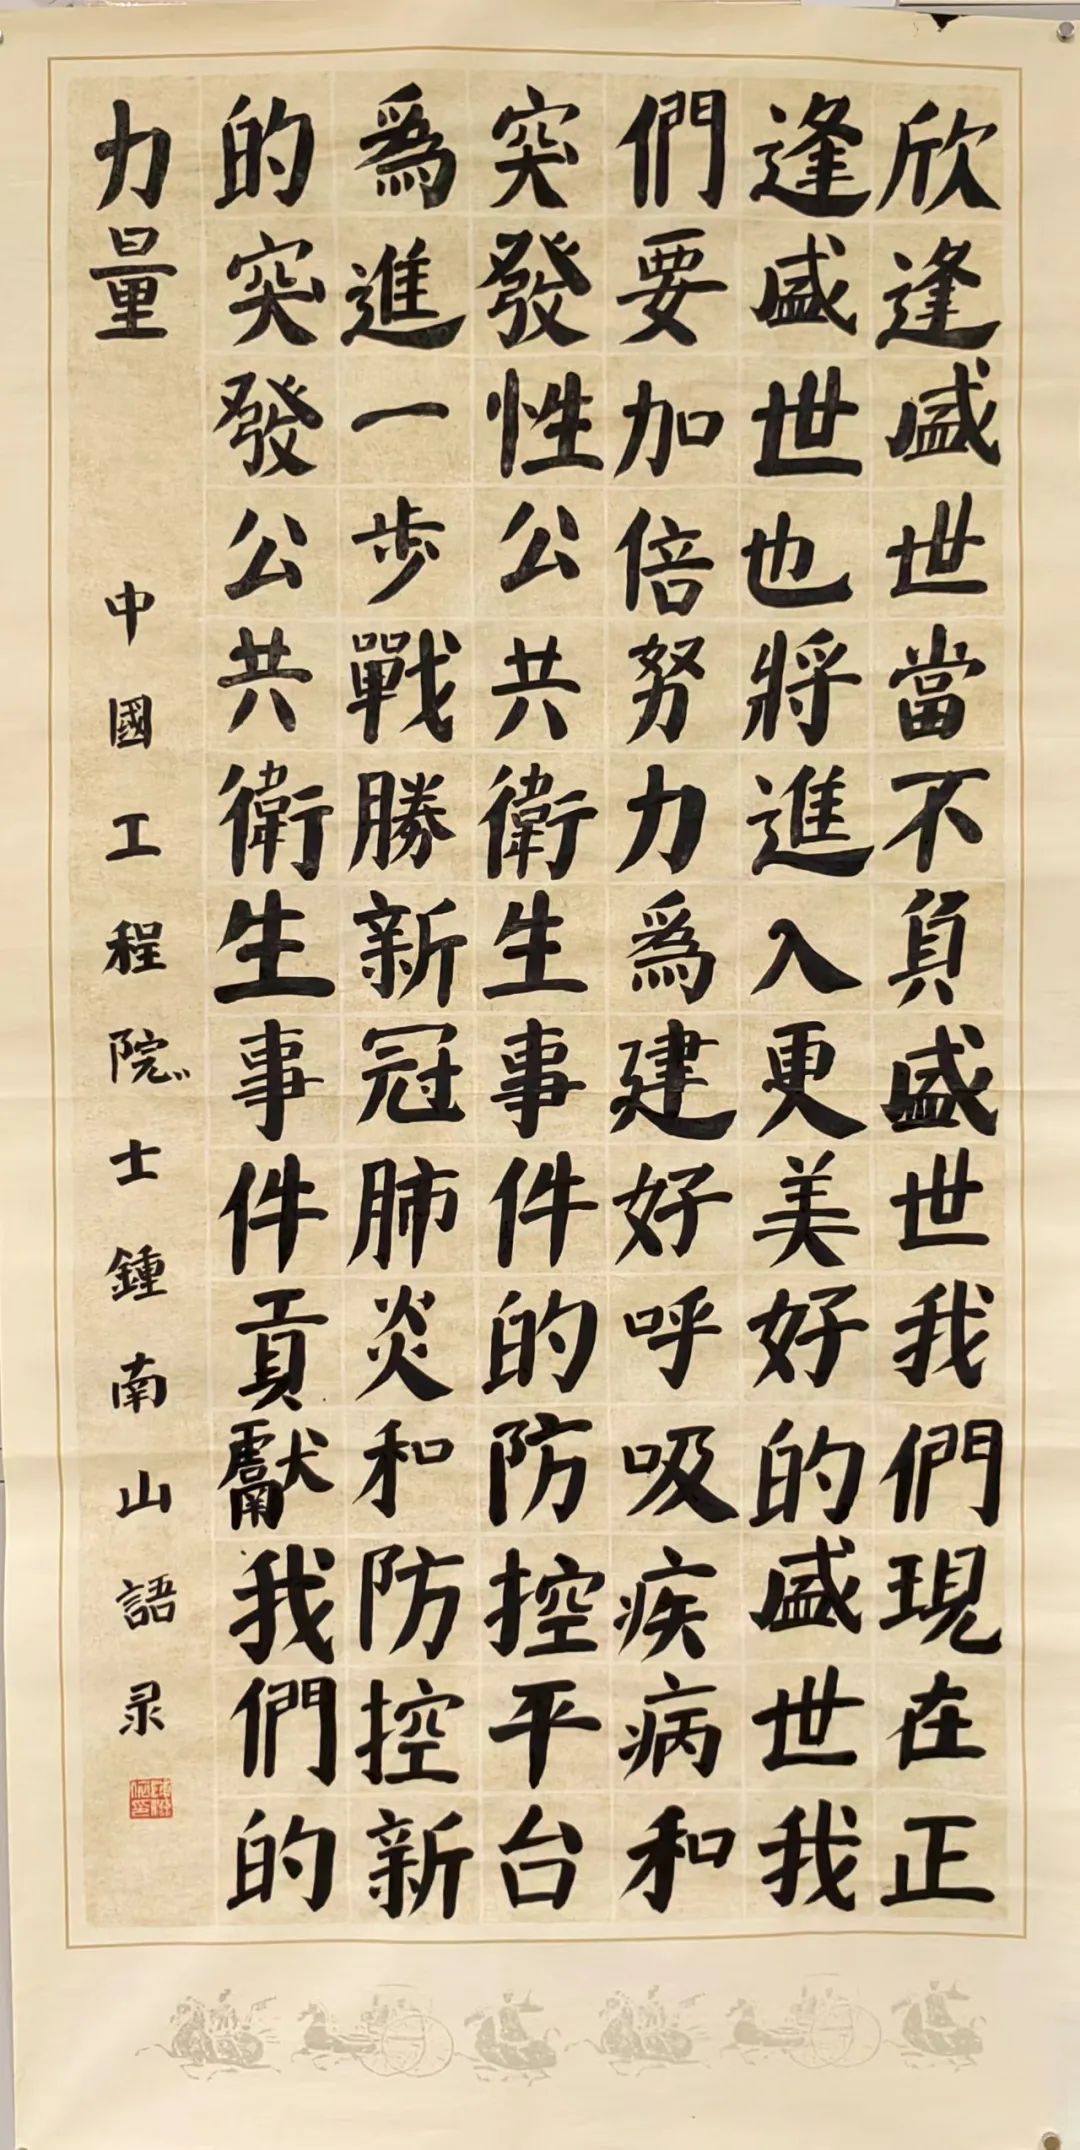 欣逢盛世當不負盛世我們現在正
逢盛世也將進入更美好的盛世我
們要加倍努力為建好呼吸疾病和
突發性公共衛生事件的防控平台
為進一步戰勝新冠肺炎和防控新
的突發公共衛生事件貢獻我們的
力量
中國工程院士鍾南山語录